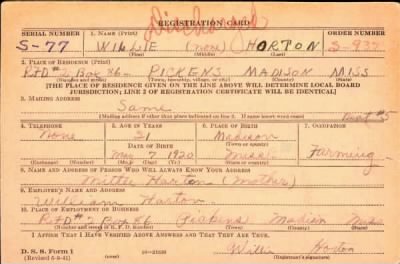 Discharged
REGISTRATION CARD
SERIAL NUMBER 1. NAME (Print) ORDER NUMBER
S-77 WILLIE (none) HORTON S-937
2. PLACE OF RESIDENCE (Print)
RFD #2 Box 86 PICKENS MADISON MISS
[THE PLACE OF RESIDENCE GIVEN ON THE LINE ABOVE WILL DETERMINE LOCAL BOARD
JURISDICTION; LINE 2 OF REGISTRATION CERTIFICATE WILL BE IDENTICAL]
3. MAILING ADDRESS
Same
[Mailing address if other than place indicated on line 2. If same insert word same]
4. TELEPHONE 5. AGE IN YEARS 6. PLACE OF BIRTH 7. OCCUPATION
None 21 Madison
DATE OF BIRTH
May 7 1920 Miss Farming
(Exchange) (Number) (Mo.) (Day) (Yr.) (State or country)
8. NAME AND ADDRESS OF PERSON WHO WILL ALWAYS KNOW YOUR ADDRESS
Mittie Horton (Mother)
9. EMPLOYER'S NAME AND ADDRESS
William Horton
10. PLACE OF EMPLOYMENT OR BUSINESS
RFD #2 Box 86 Pickens Madison Miss
I AFFIRM THAT I HAVE VERIFIED ABOVE ANSWERS AND THAT THEY ARE TRUE.
D. S. S. Form 1 Willie Horton
(Revised 6-9-41)